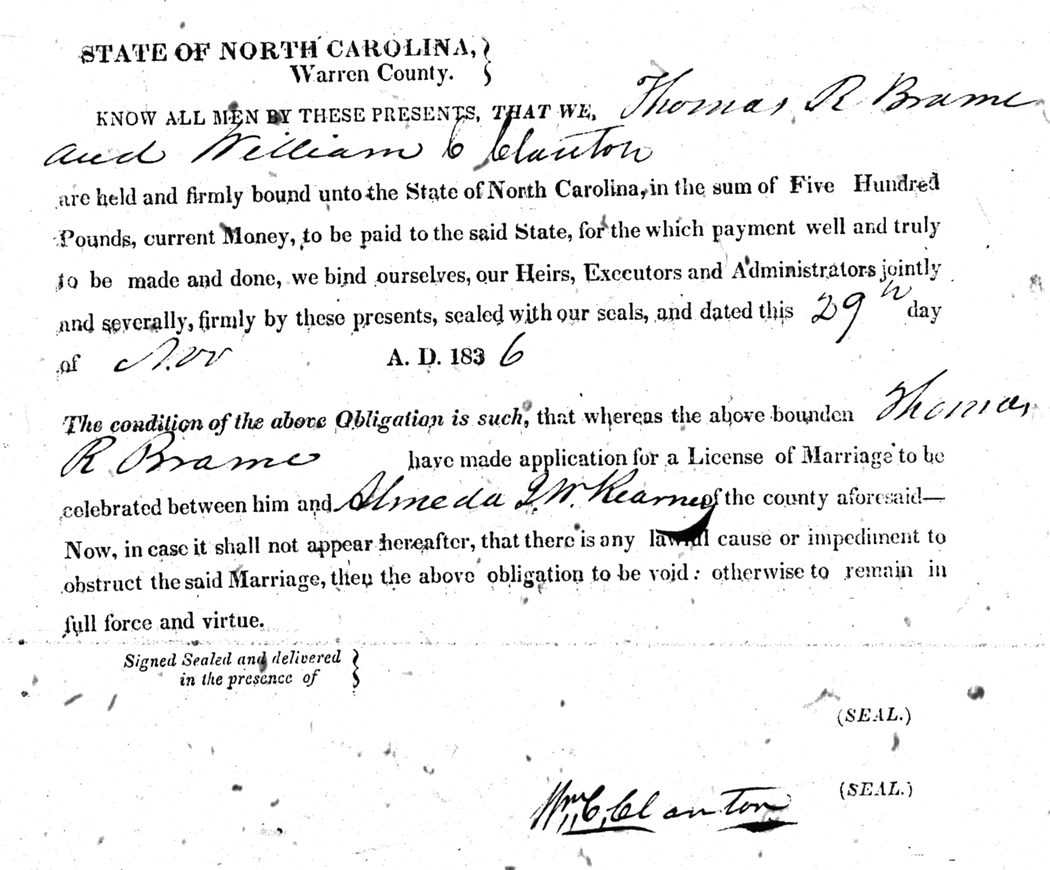 STATE OF NORTH CAROLINA,
Warren County.
KNOW ALL MEN BY THESE PRESENTS, THAT WE, Thomas R Brame
and William C Clanton
are held and firmly bound unto the State of North Carolina, in the sum of Five Hundred
Pounds, current Money, to be paid to the said State, for the which payment well and truly
to be made and done, we bind ourselves, our Heirs, Executors and Administrators jointly
and severally, firmly by these presents, sealed with our seals, and dated this 29th day
of Nov A. D. 1836
The condition of the above Obligation is such, that whereas the above bounden Thomas
R Brame have made application for a License of Marriage to be
celebrated between him and Almeda J. W. Kearney of the county aforesaid—
Now, in case it shall not appear hereafter, that there is any lawful cause or impediment to
obstruct the said Marriage, then the above obligation to be void: otherwise to remain in
full force and virtue.
Signed Sealed and delivered
in the presence of
(SEAL.)
Wm. C. Clanton (SEAL.)